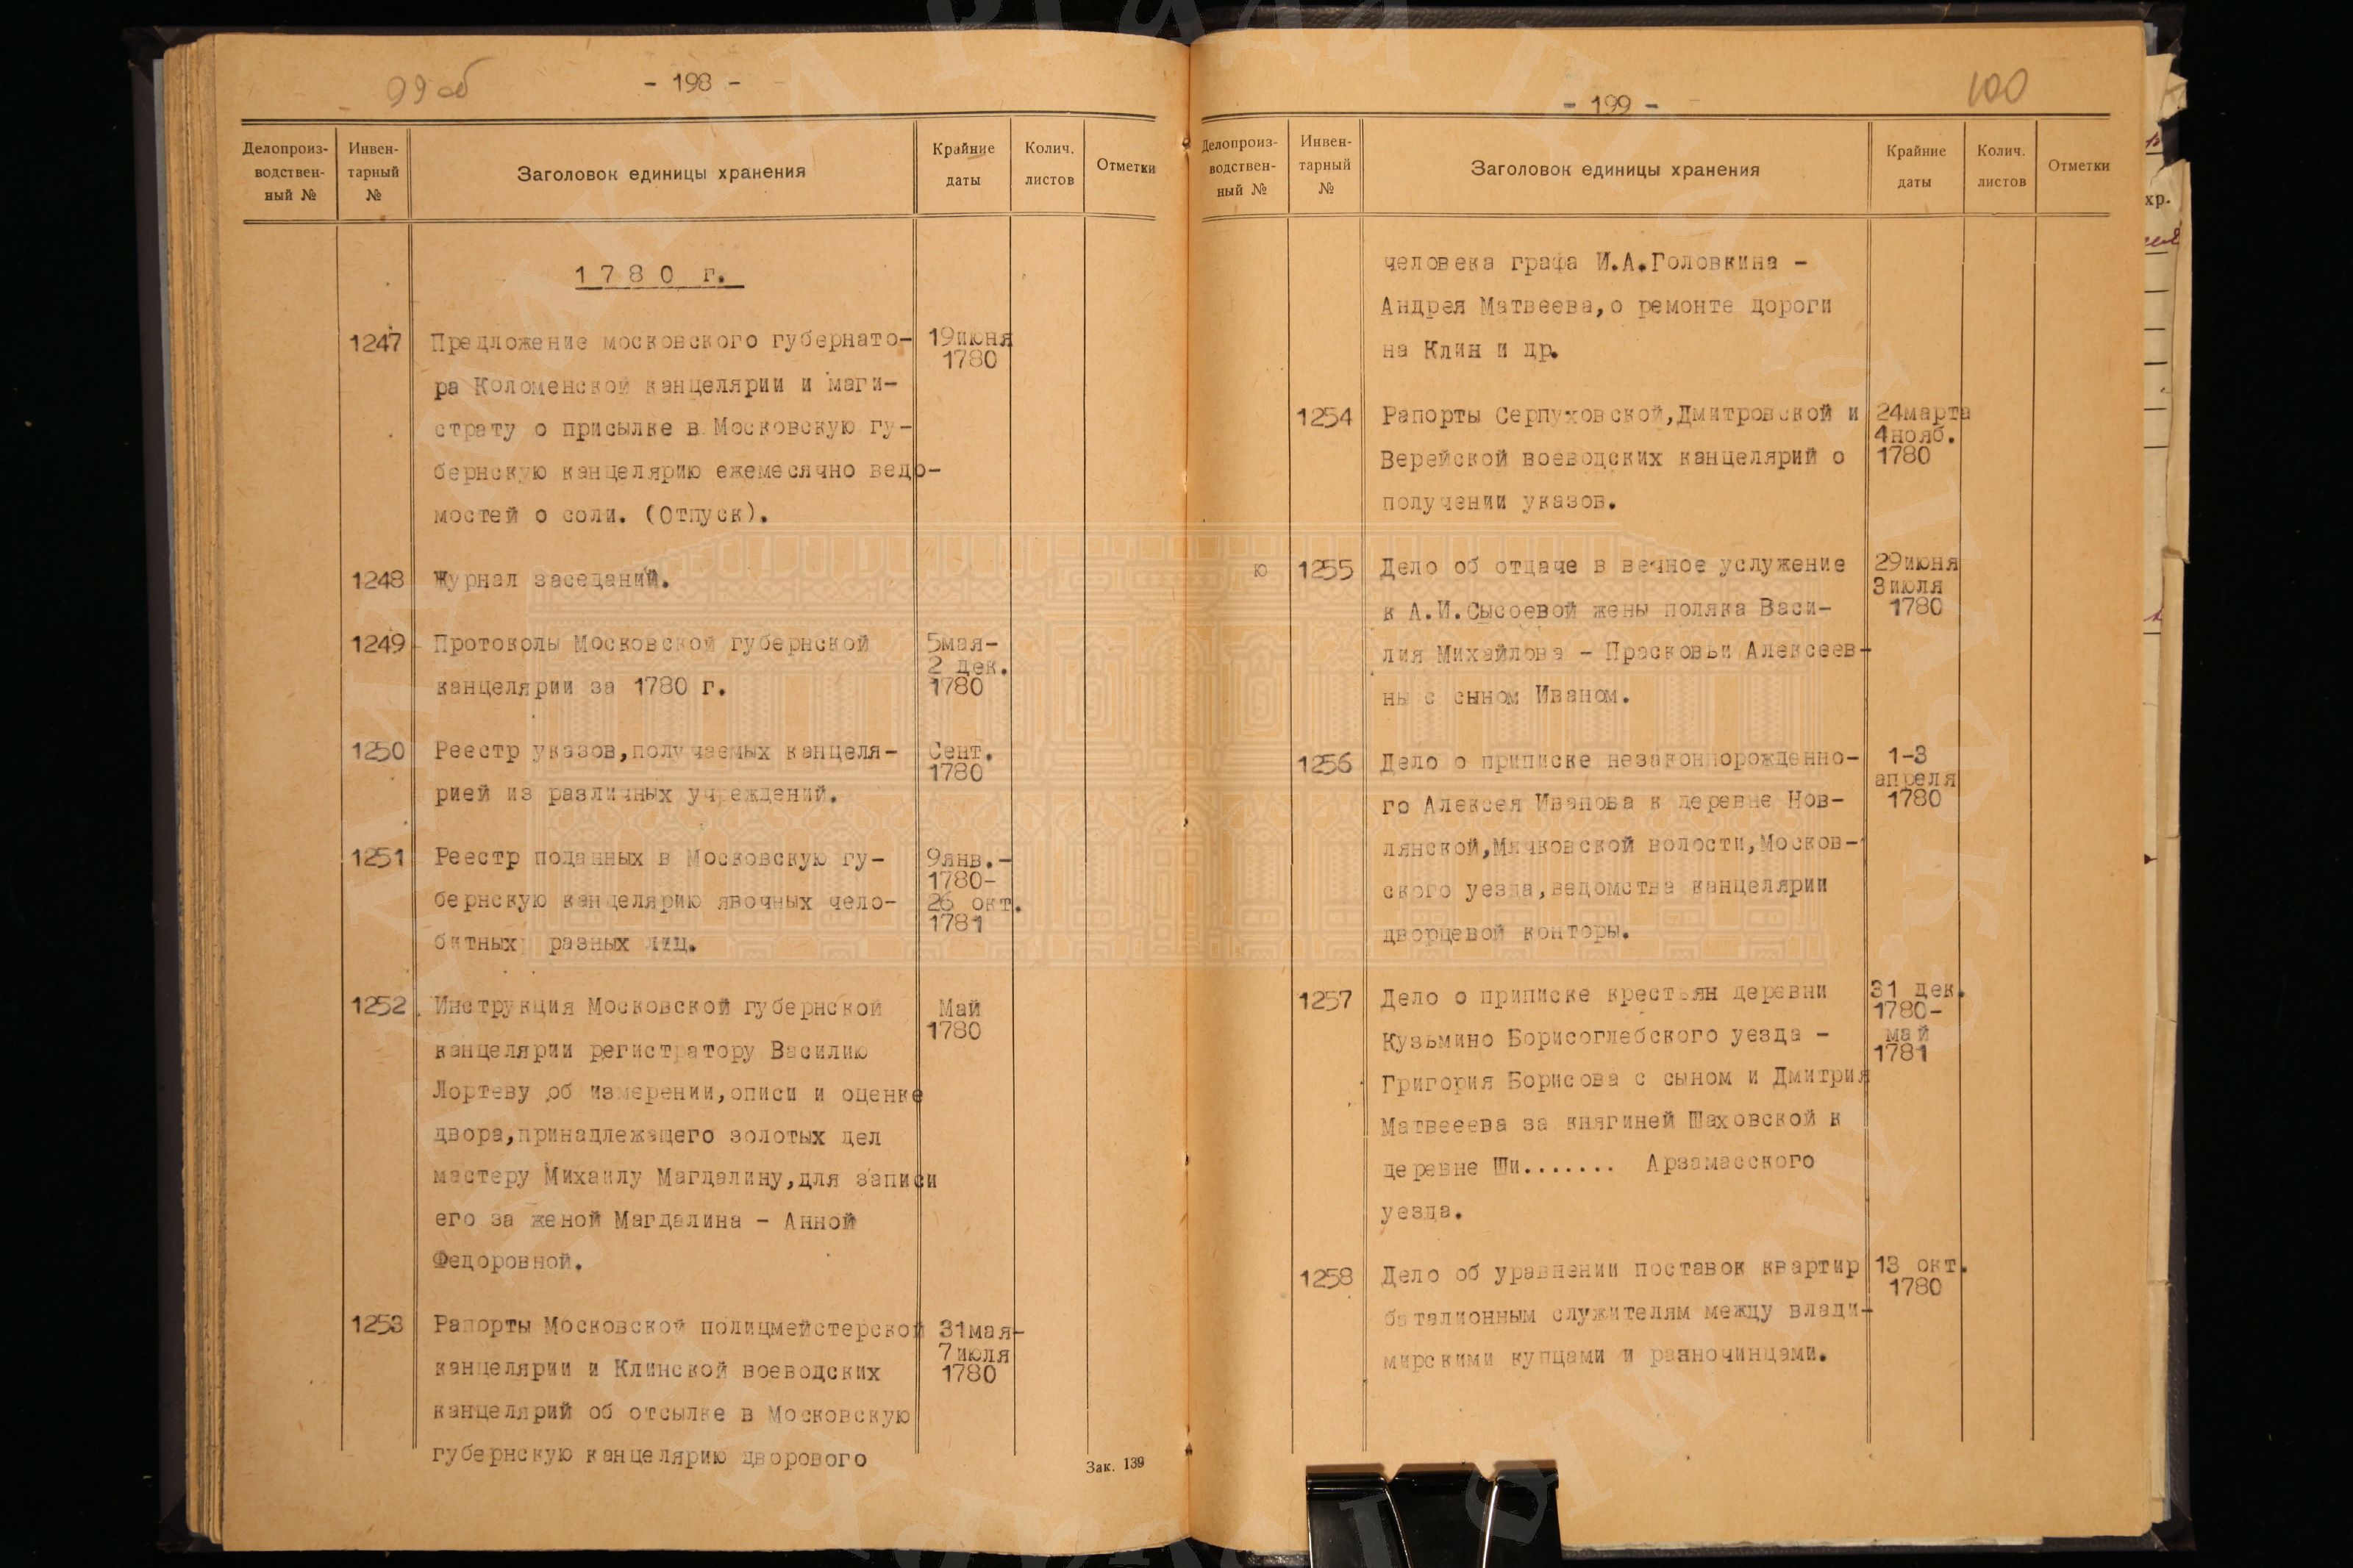 99 об
- 198 -
Делопроиз-
водствен-
ный №
Инвен-
тарный
№
Заголовок единицы хранения
Крайние
даты
Колич.
листов
Отметки
1780 г.
1247 Предложение московского губернато- 19июня
1780
ра Коломенской канцелярии и маги-
страту о присылке в Московскую гу-
бернскую канцелярию ежемесячно ведо-
мостей о соли. (Отпуск).
1248 Журнал заседаний.
1249 Протоколы Московской губернской 5мая-
2 дек.
канцелярии за 1780 г. 1780
1250 Реестр указов,получаемых канцеля- Сент.
1780
рией из различных учреждений.
1251 Реестр поданных в Московскую гу- 9янв.-
1780-
бернскую канцелярию явочных чело- 26 окт.
1781
битных разных лиц.
1252 Инструкция Московской губернской Май
1780
канцелярии регистратору Василию
Лортеву об измерении,описи и оценке
двора,принадлежащего золотых дел
мастеру Михаилу Магдалину,для записи
его за женой Магдалина - Анной
Федоровной.
1253 Рапорты Московской полицмейстерской 31мая-
7июля
канцелярии и Клинской воеводских 1780
канцелярий об отсылке в Московскую
губернскую канцелярию дворового
Зак. 139
100
- 199 -
Делопроиз-
водствен-
ный №
Инвен-
тарный
№
Заголовок единицы хранения
Крайние
даты
Колич.
листов
Отметки
человека графа И.А.Головкина -
Андрея Матвеева,о ремонте дороги
на Клин и др.
1254 Рапорты Серпуховской,Дмитровской и 24марта
4нояб.
Верейской воеводских канцелярий о 1780
получении указов.
ю 1255 Дело об отдаче в вечное услужение 29июня
3июля
к А.И.Сысоевой жены поляка Васи- 1780
лия Михайлова - Прасковьи Алексеев-
ны с сыном Иваном.
1256 Дело о приписке незаконнорожденно- 1-3
апреля
го Алексея Иванова к деревне Нов- 1780
лянской,Мячковской волости,Москов-
ского уезда,ведомства канцелярии
дворцевой конторы.
1257 Дело о приписке крестьян деревни 31 дек.
1780-
Кузьмино Борисоглебского уезда - май
1781
Григория Борисова с сыном и Дмитрия
Матвееева за княгиней Шаховской к
деревне Ши....... Арзамасского
уезда.
1258 Дело об уравнении поставок квартир 13 окт.
1780
баталионным служителям между влади-
мирскими купцами и разночинцами.
хр.